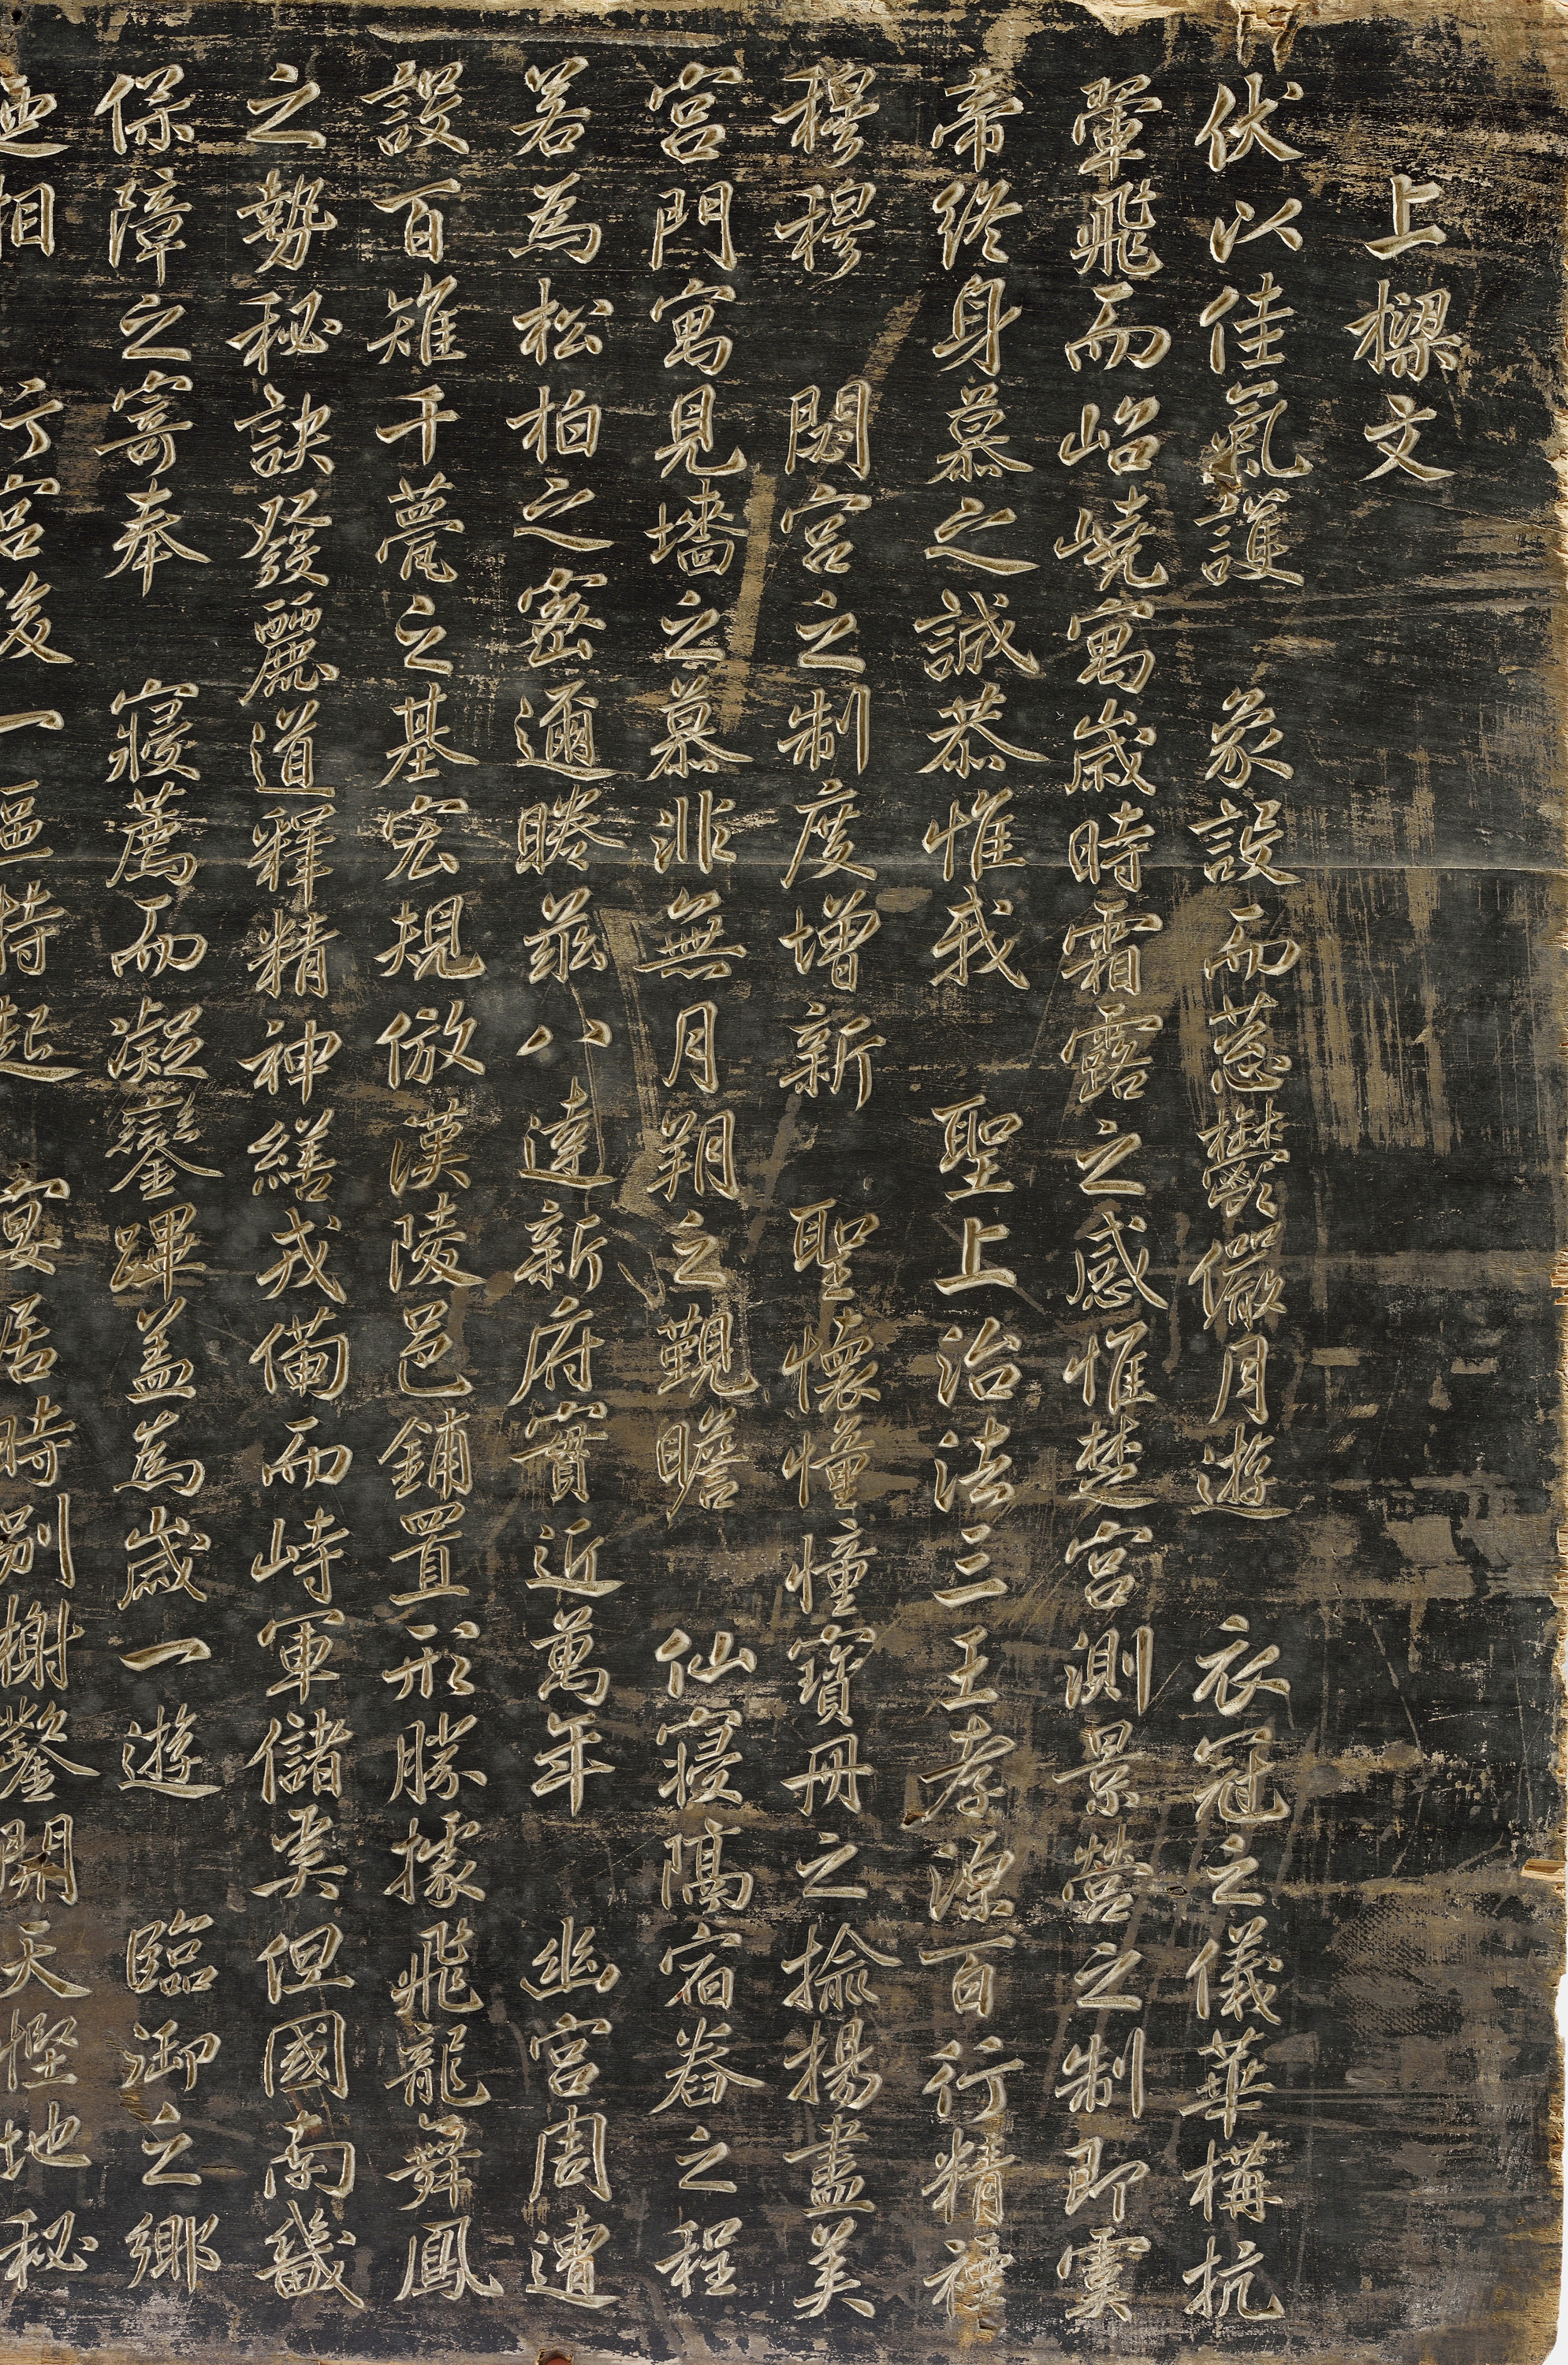 上樑文
伏以佳氣護 象設而蔥鬱儼月遊 衣冠之儀華構抗
翬飛而岧嶢寓歲時霜露之感惟楚宮測景營之制即虞
帝終身慕之誠恭惟我 聖上治法三王孝源百行精禋
穆穆 閟宮之制度增新 聖懷憧憧寶冊之揄揚盡美
宮門寓見墻之慕非無月朔之覲瞻 仙寢隔宿舂之程
若為松柏之密邇睠茲八達新府實近萬年 幽宮周遭
設百雉千甍之基宏規倣漢陵邑鋪置形勝據飛龍舞鳳
之勢秘訣發麗道釋精神繕戎備而峙軍儲奚但國南畿
保障之寄奉 寢薦而凝鑾蹕蓋為歲一遊 臨御之鄉
相 行宮後一區特起 宴居時別榭鑿開天慳地秘